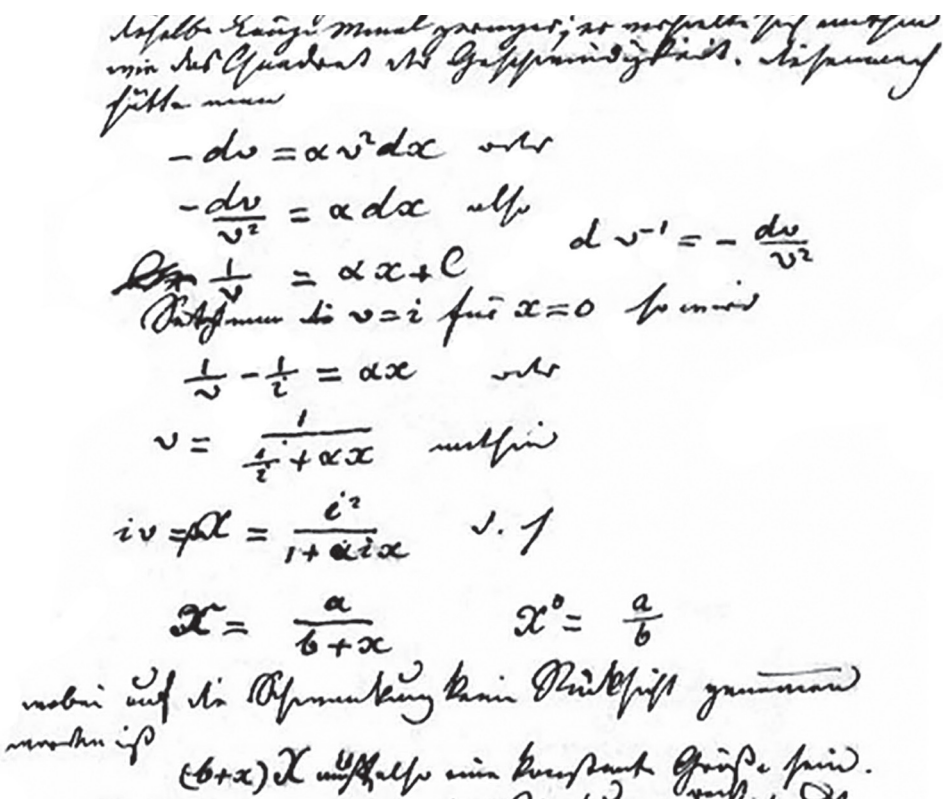 dieselbe Länge Mmal geringer; er verhielte sich mithin
wie das Quadrat der Geschwindigkeit. Diesemnach
hätte man
− dv = αv²dx oder
− dv/v² = α dx also
d v⁻¹ = − dv/v²
1/v = αx + C
Setzt man v = i für x = 0 so wird
1/v − 1/i = αx oder
v = 1/(1/i + αx) mithin
iv = X = i²/(1 + αix)
X = a/(b + x) X⁰ = a/b
wobei auf die Schwankung kein Rücksicht genommen
worden ist
(b+x) X muß also eine konstante Größe sein.